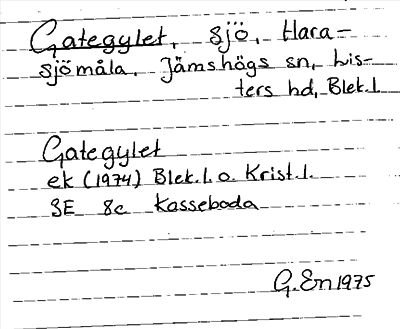 Gategylet, sjö, Hara-
sjömåla, Jämshögs sn, Lis-
ters hd, Blek.l
Gategylet
ek (1974) Blek.l. o. Krist.l.
3E 8c Kasseboda
G. En 1975